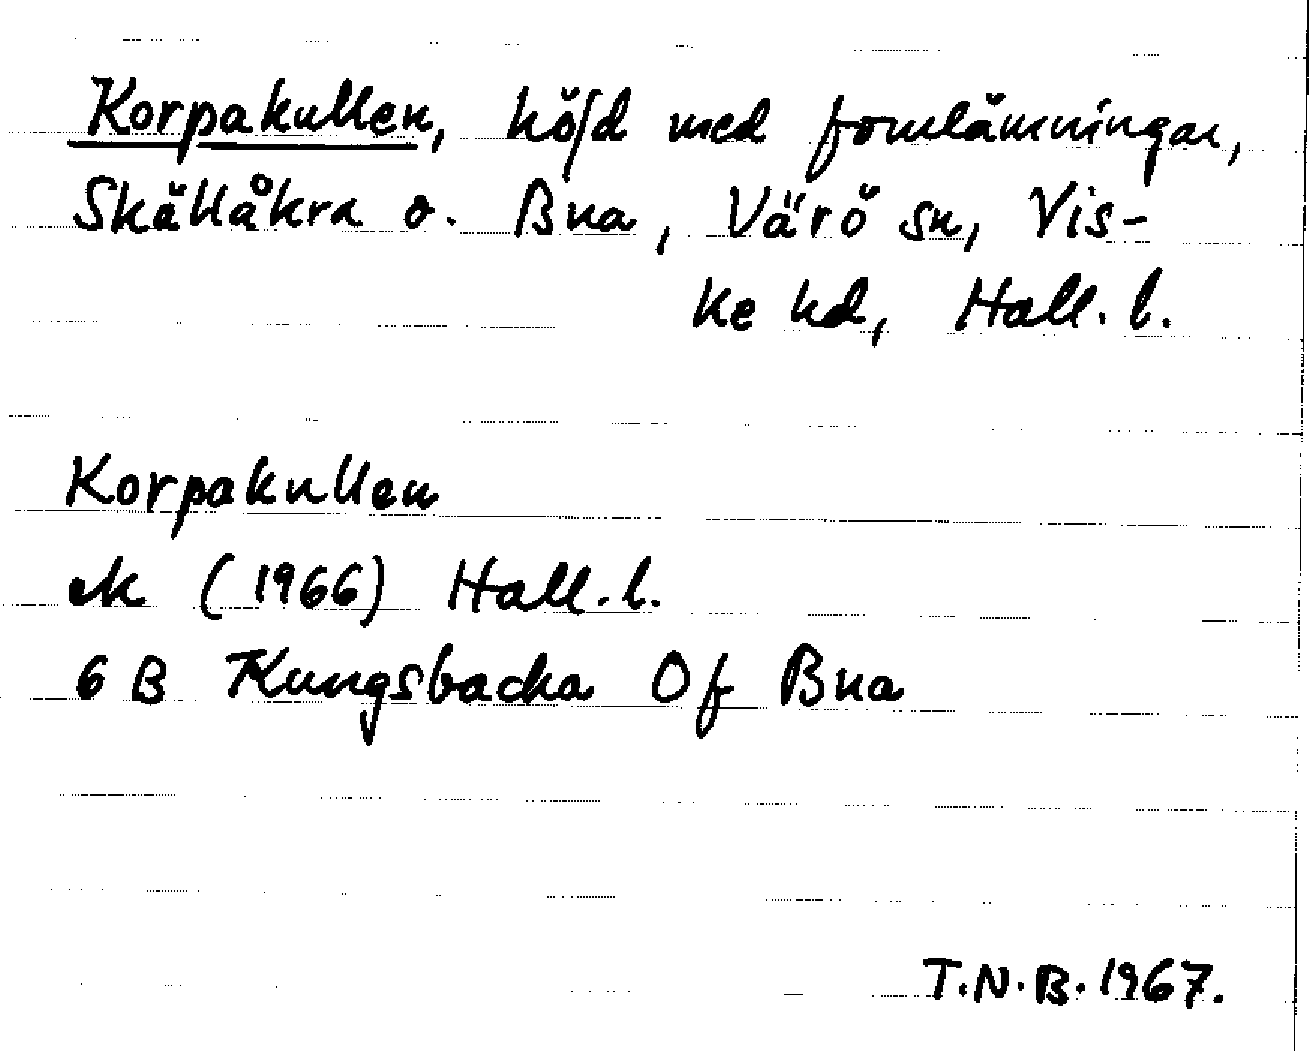 Korpakullen, höjd med fornlämningar,
Skällåkra o. Bua, Värö sn, Vis-
ke hd, Hall. l.
Korpakullen
ek (1966) Hall. l.
6 B Kungsbacka Of Bua
T.N.B. 1967.